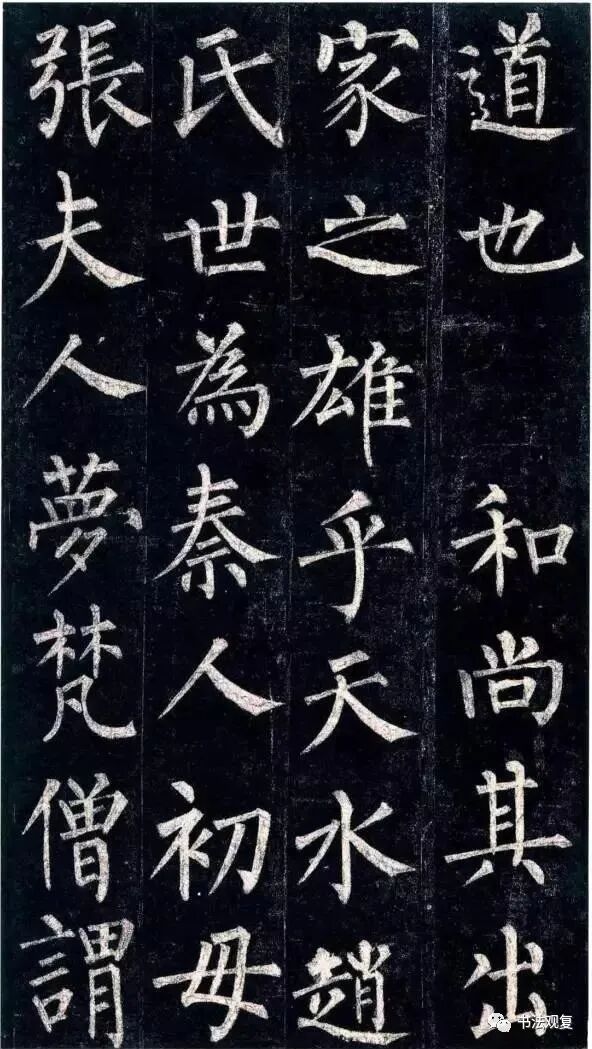 道也　和尚其出
家之雄乎天水趙
氏世為秦人初母
張夫人夢梵僧謂
书法观复